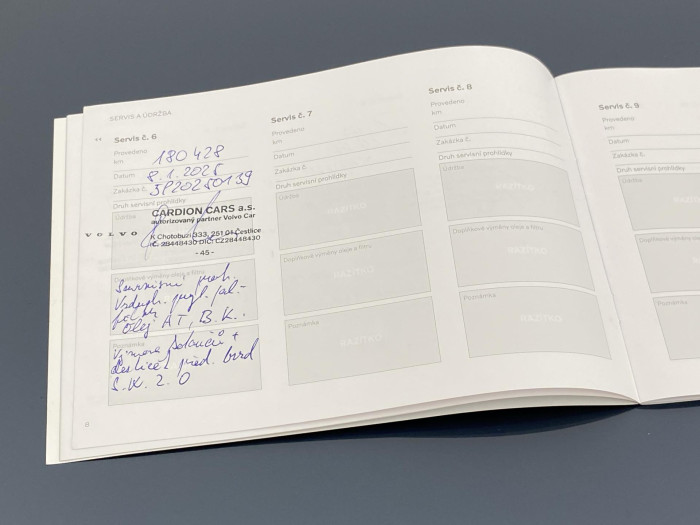 SERVIS A ÚDRŽBA
44
Servis č. 6
Provedeno
km 180 428
Datum 8.1.2025
Zakázka č. 3P20250139
Druh servisní prohlídky
Údržba
VOLVO
CARDION CARS a.s.
autorizovaný partner Volvo Car
K Chotobuzi 333, 251 01 Čestlice
IČ: 28448430 DIČ: CZ28448430
- 45 -
Doplňkové výměny oleje a filtru
Servisní proh.
Vzduch. pyl. pal-
Olej AT, B.K.
Poznámka
Výměna kotoučů +
destiček před. brzd
S.K. 2.0
8
Servis č. 7
Provedeno
km
Datum
Zakázka č.
Druh servisní prohlídky
Údržba
RAZÍTKO
Doplňkové výměny oleje a filtru
RAZÍTKO
Poznámka
RAZÍTKO
Servis č. 8
Provedeno
km
Datum
Zakázka č.
Druh servisní prohlídky
Údržba
RAZÍTKO
Doplňkové výměny oleje a filtru
RAZÍTKO
Poznámka
RAZÍTKO
Servis č. 9
Provedeno
km
Datum
Zakázka č.
Druh servisní prohlídky
Údržba
Doplňkové výměny
Poznámka